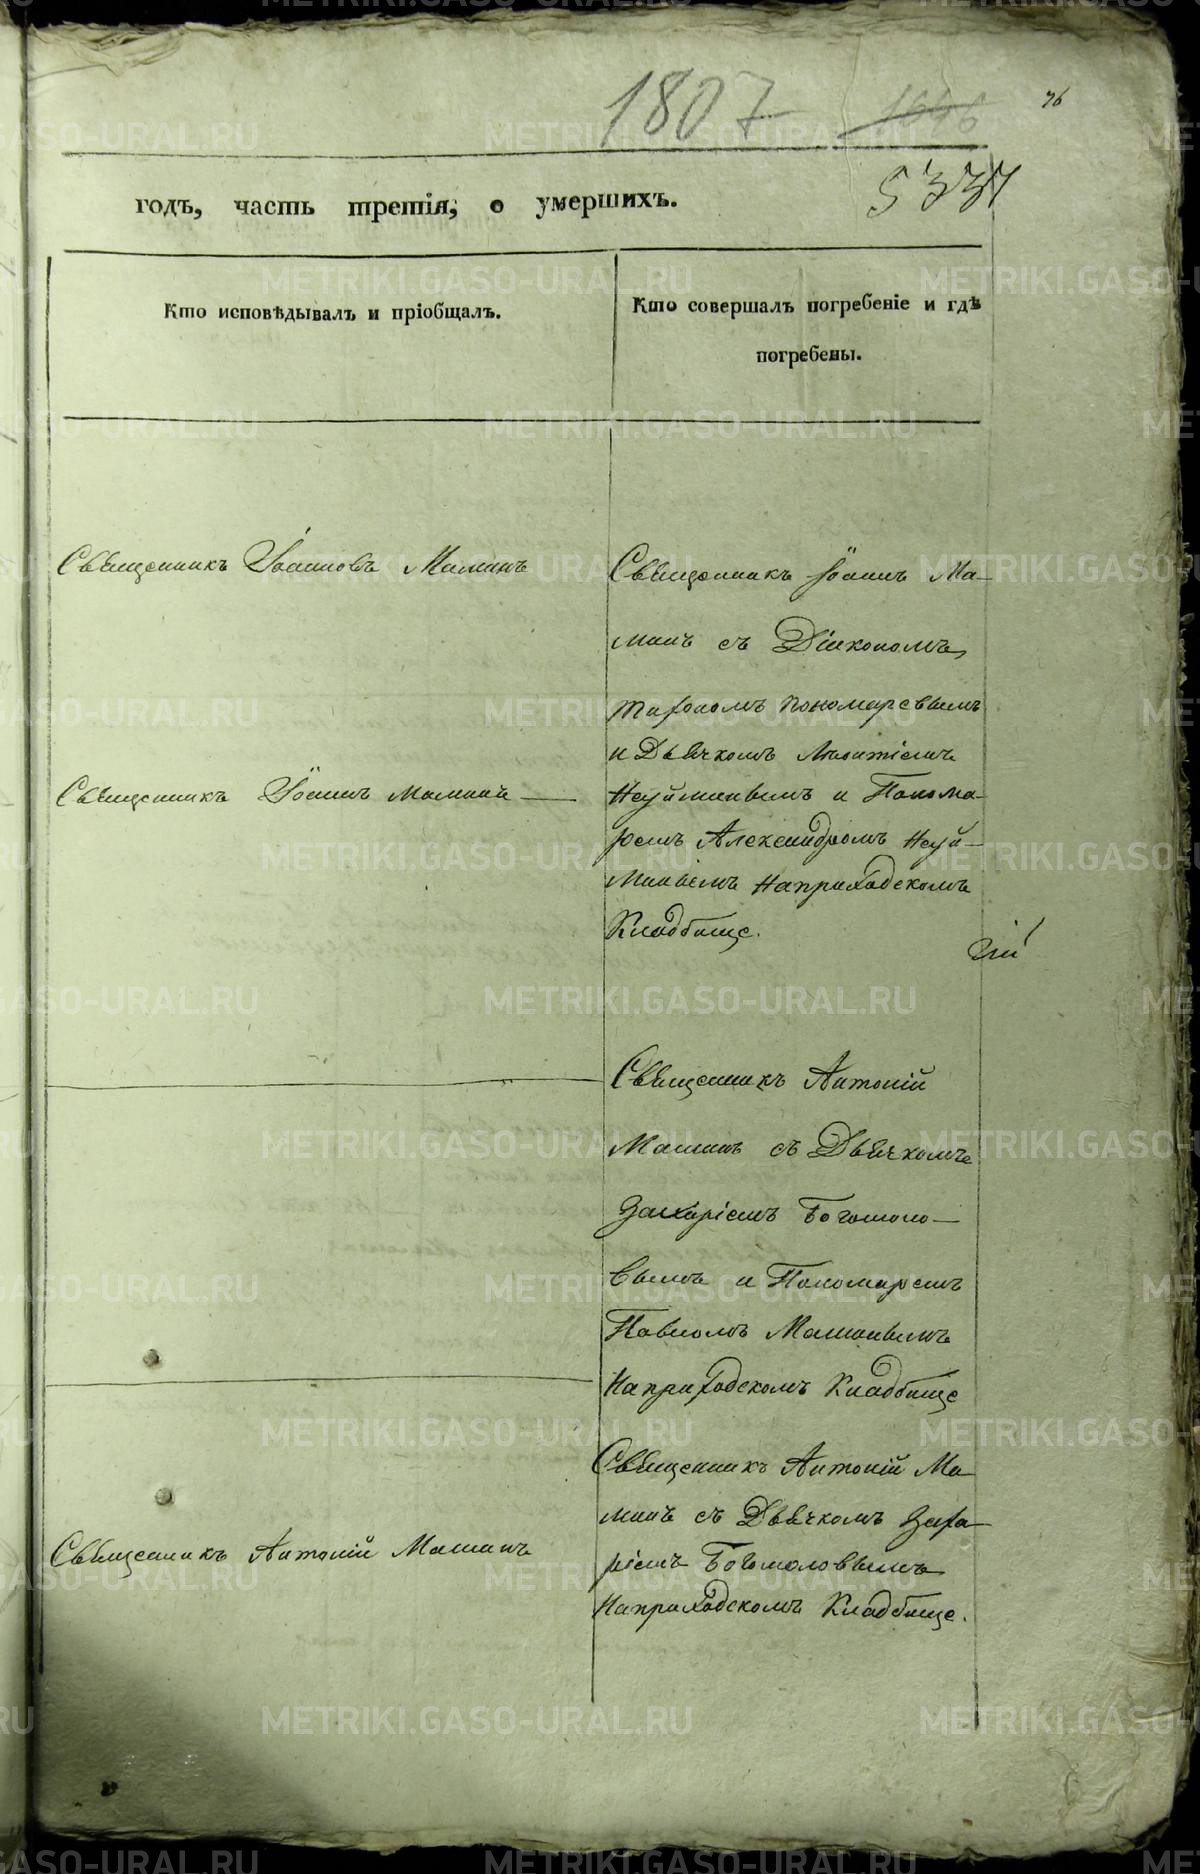 1807 1646 76
5337
годъ, часть третія, о умершихъ.
Кто исповѣдывалъ и пріобщалъ.
Кто совершалъ погребеніе и гдѣ
погребены.
Священникъ Іоанновъ Маминъ
Священникъ Іоаннъ Ма-
минъ съ Діякономъ
Пономаревымъ
и Дьячкомъ
Священникъ Іоаннъ Маминъ
Неуйминымъ и Понома-
ремъ Александромъ Неуй-
минымъ наприходскомъ
Кладбище.
Священникъ Антоній
Маминъ съ Дьячкомъ
Захаріемъ Богомоло-
вымъ и Пономаремъ
Павломъ Маминымъ
наприходскомъ Кладбище
Священникъ Антоній Ма-
минъ съ Дьячкомъ Заха-
ріемъ Богомоловымъ
наприходскомъ Кладбище.
Священникъ Антоній Маминъ
METRIKI.GASO-URAL.RU